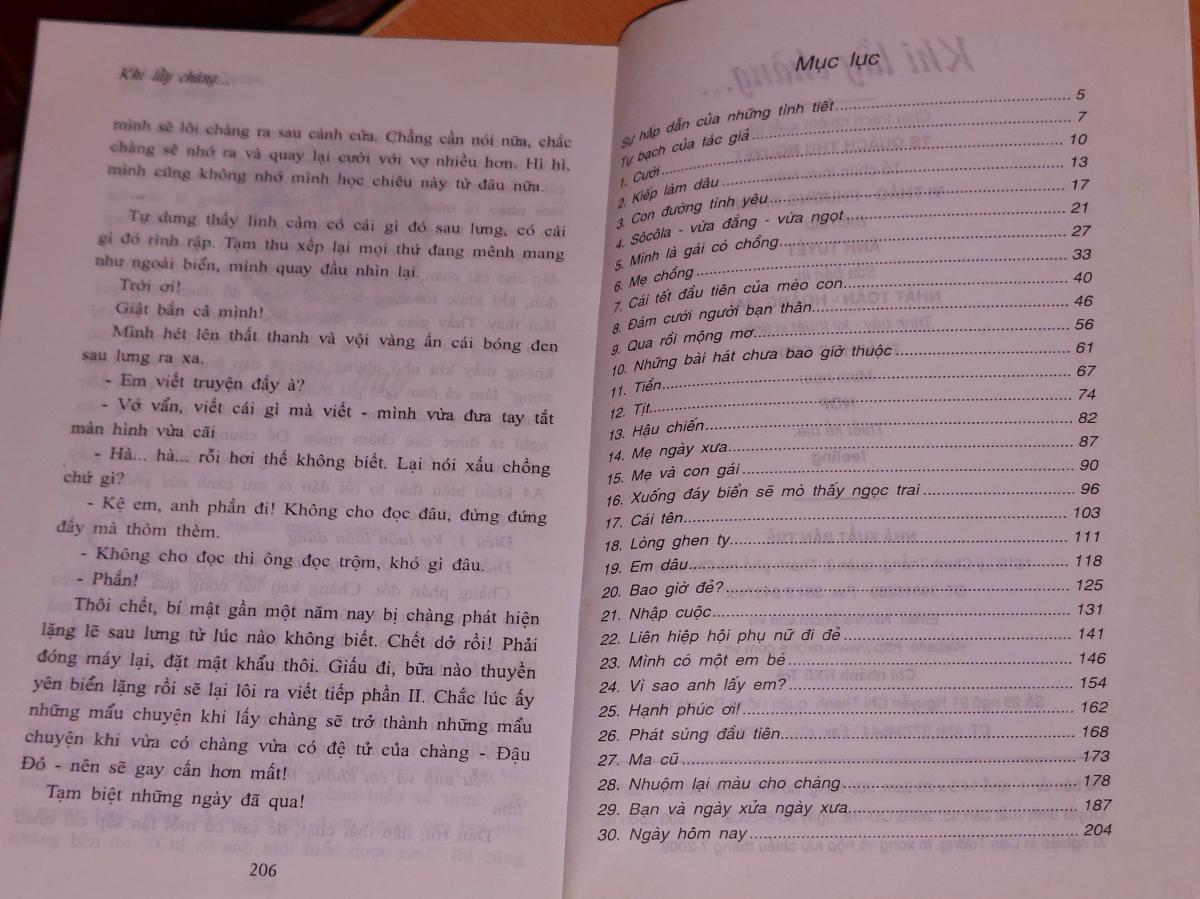 Khi lấy chàng...
mình sẽ lôi chàng ra sau cánh cửa. Chẳng cần nói nữa, chắc
chàng sẽ nhớ ra và quay lại cười với vợ nhiều hơn. Hì hì,
mình cũng không nhớ mình học chiêu này từ đâu nữa.
...
Tự dưng thấy linh cảm có cái gì đó sau lưng, có cái
gì đó rình rập. Tạm thu xếp lại mọi thứ đang mênh mang
như ngoài biển, mình quay đầu nhìn lại.
Trời ơi!
Giật bắn cả mình!
Mình hét lên thất thanh và vội vàng ấn cái bóng đen
sau lưng ra xa.
- Em viết truyện đấy à?
- Vớ vẩn, viết cái gì mà viết - mình vừa đưa tay tắt
màn hình vừa cãi
- Hà... hà... rỗi hơi thế không biết. Lại nói xấu chồng
chứ gì?
- Kệ em, anh phắn đi! Không cho đọc đâu, đừng đứng
đấy mà thòm thèm.
- Không cho đọc thì ông đọc trộm, khó gì đâu.
- Phắn!
Thôi chết, bí mật gần một năm nay bị chàng phát hiện
lặng lẽ sau lưng từ lúc nào không biết. Chết dở rồi! Phải
đóng máy lại, đặt mật khẩu thôi. Giấu đi, bữa nào thuyền
yên biển lặng rồi sẽ lại lôi ra viết tiếp phần II. Chắc lúc ấy
những mẩu chuyện khi lấy chàng sẽ trở thành những mẩu
chuyện khi vừa có chàng vừa có đệ tử của chàng - Đậu
Đỏ - nên sẽ gay cấn hơn mất!
Tạm biệt những ngày đã qua!
206
Mục lục
Sự hấp dẫn của những tình tiết 5
Tự bạch của tác giả 7
1. Cưới 10
2. Kiếp làm dâu 13
3. Con đường tình yêu 17
4. Sôcôla - vừa đắng - vừa ngọt 21
5. Mình là gái có chồng 27
6. Mẹ chồng 33
7. Cái tết đầu tiên của mèo con 40
8. Đám cưới người bạn thân 46
9. Qua rồi mộng mơ 56
10. Những bài hát chưa bao giờ thuộc 61
11. Tiền 67
12. Tịt 74
13. Hậu chiến 82
14. Mẹ ngày xưa 87
15. Mẹ và con gái 90
16. Xuống đáy biển sẽ mò thấy ngọc trai 96
17. Cái tên 103
18. Lòng ghen tỵ 111
19. Em dâu 118
20. Bao giờ đẻ? 125
21. Nhập cuộc 131
22. Liên hiệp hội phụ nữ đi đẻ 141
23. Mình có một em bé 146
24. Vì sao anh lấy em? 154
25. Hạnh phúc ơi! 162
26. Phát súng đầu tiên 168
27. Ma cũ 173
28. Nhuộm lại màu cho chàng 178
29. Bạn và ngày xửa ngày xưa 187
30. Ngày hôm nay 204